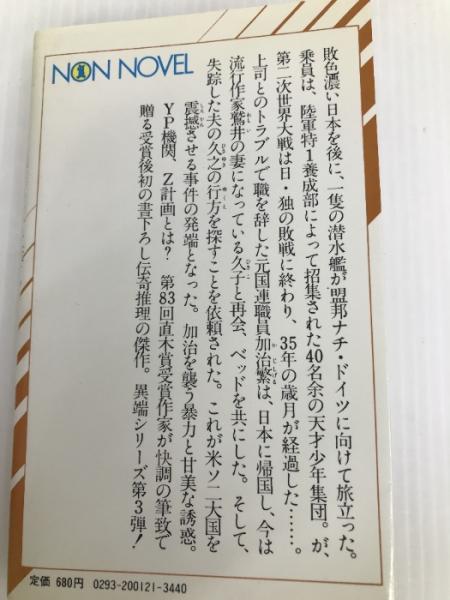 NON NOVEL
敗色濃い日本を後に、一隻の潜水艦が盟邦ナチ・ドイツに向けて旅立った。
乗員は、陸軍特1養成部によって招集された40名余の天才少年集団。が、
第二次世界大戦は日・独の敗戦に終わり、35年の歳月が経過した……。
上司とのトラブルで職を辞した元国連職員加治繁は、日本に帰国し、今は
流行作家鷲井の妻になっている久子と再会、ベッドを共にした。そして、
失踪した夫の久之の行方を探すことを依頼された。これが米ソ二大国を
震撼させる事件の発端となった。加治を襲う暴力と甘美な誘惑。
YP機関、Z計画とは? 第83回直木賞受賞作家が快調の筆致で
贈る受賞後初の書下ろし伝奇推理の傑作。異端シリーズ第3弾!
定価 680円 0293-200121-3440